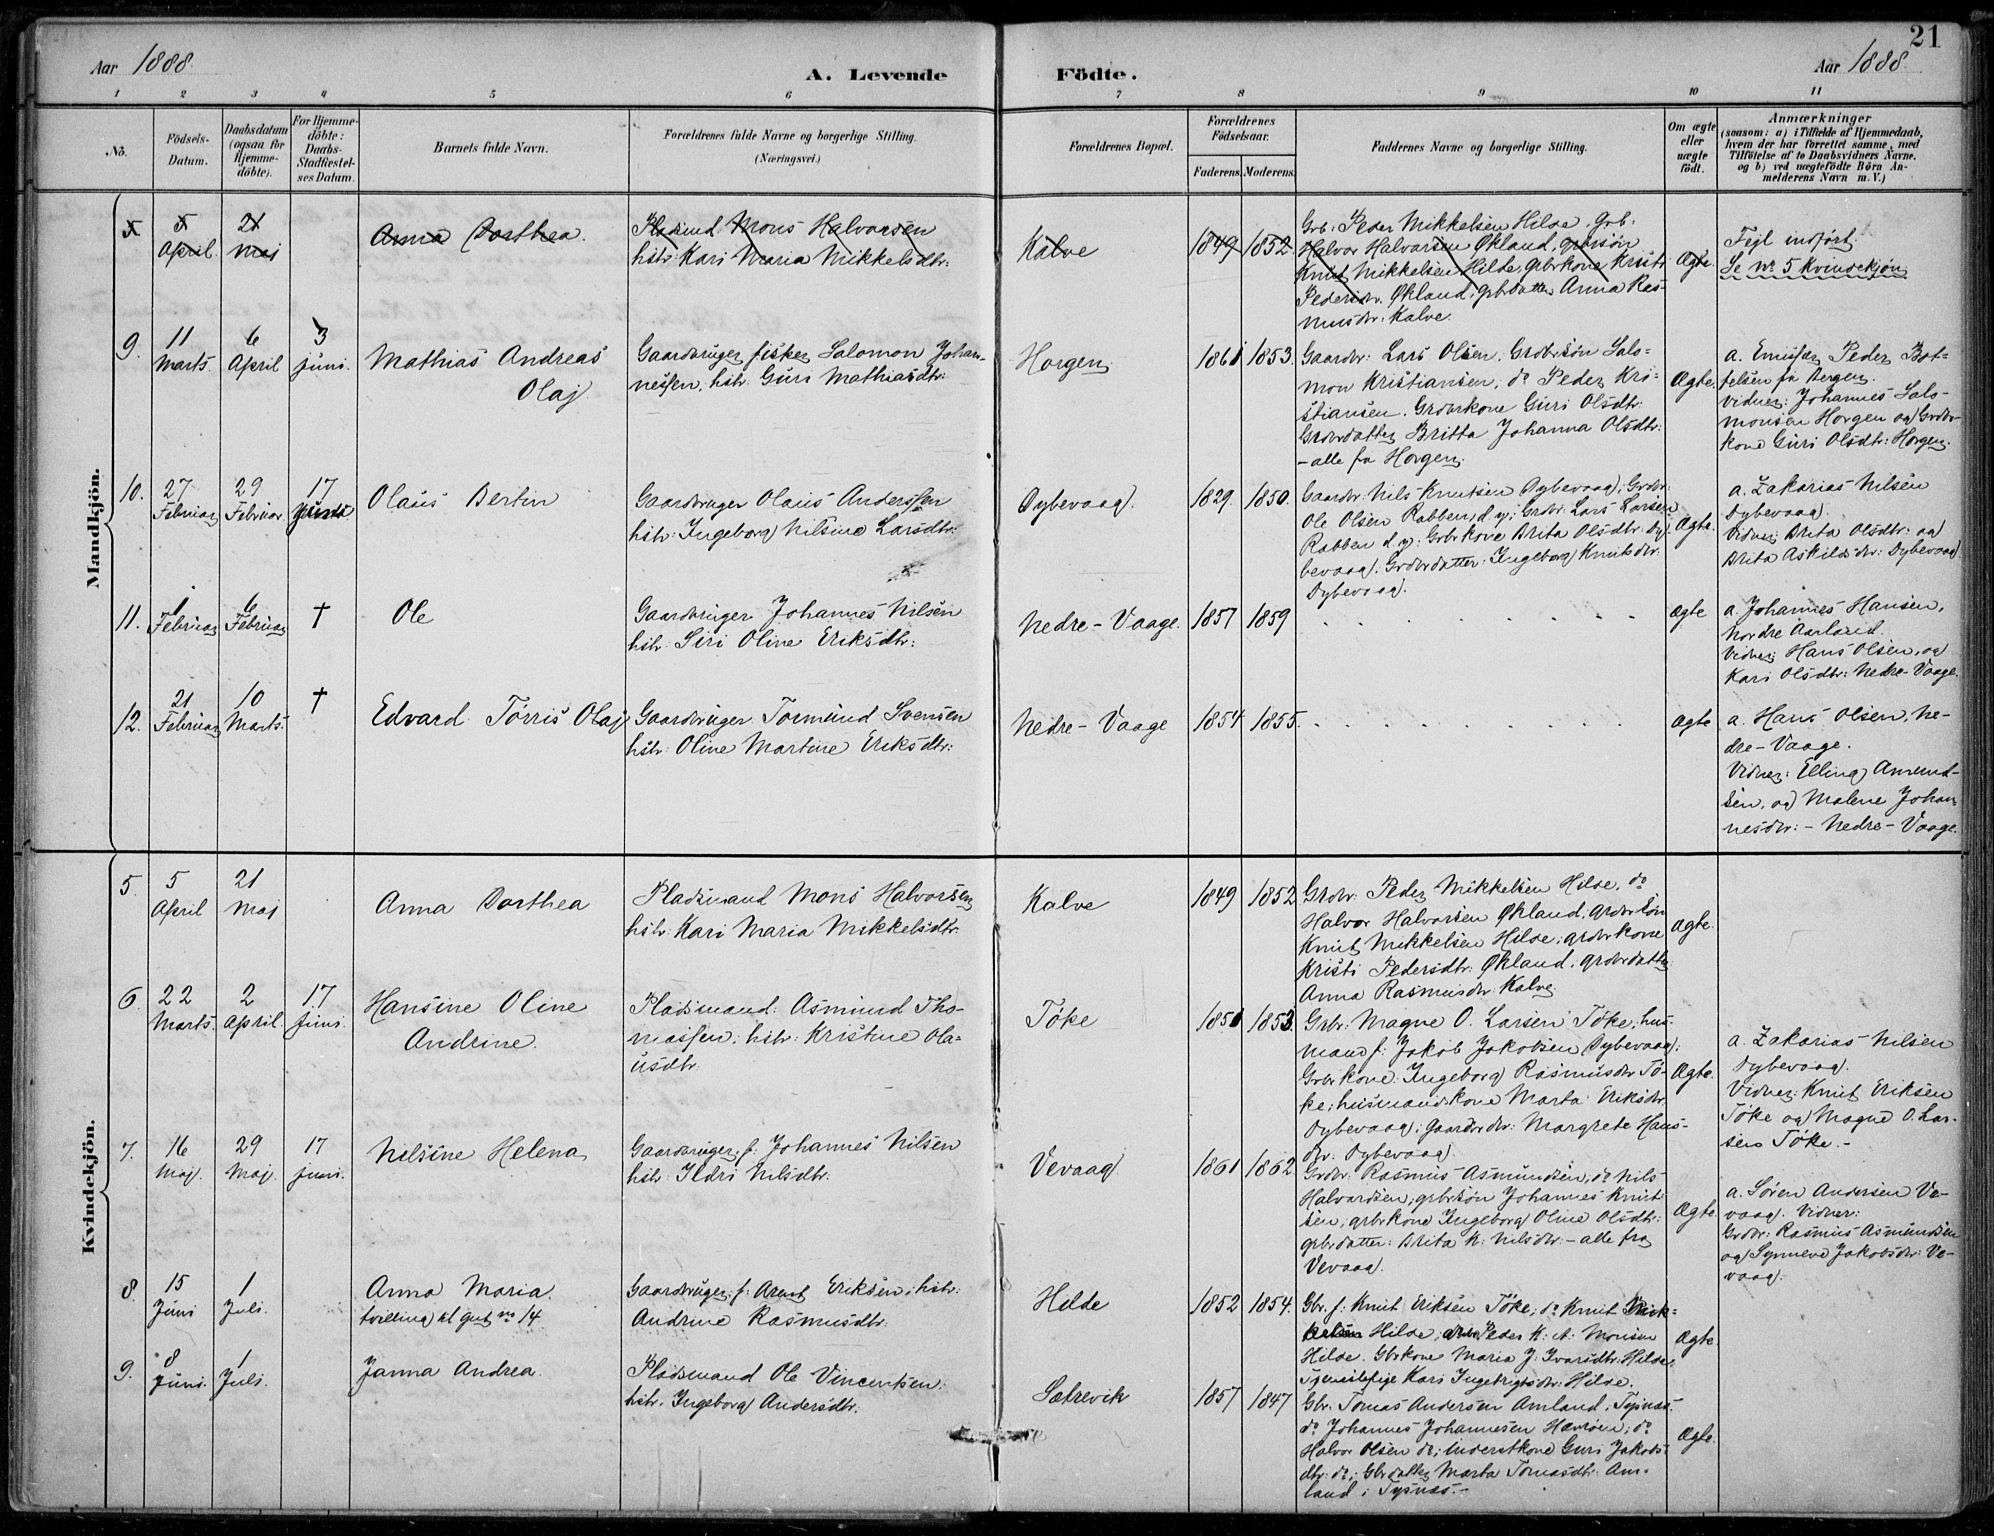 21
Aar 1888.
A. Levende
Födte.
Aar 1888.
1 2 3 4 5 6 7 8 9 10 11
No.
Födsels-
Datum.
Daabsdatum
(ogsaa for
Hjemme-
döbte).
For Hjemme-
döbte:
Daabs-
Stadfæstel-
ses Datum.
Barnets fulde Navn.
Forældrenes fulde Navne og borgerlige Stilling.
(Næringsvei.)
Forældrenes Bopæl.
Forældrenes
Födselsaar.
Faderens. Moderens.
Faddernes Navne og borgerlige Stilling.
Om ægte
eller
uægte
födt.
Anmærkninger
(saasom: a) i Tilfælde af Hjemmedaab,
hvem der har forrettet samme, med
Tilföielse af to Daabsvidners Navne,
og b) ved uægtefödte Börn An-
melderens Navn m. V.)
Mandkjön.
5 5 21
April. Maj
Anna Dorthea.
Pladsmd. Mons Halvorsen
hstr: Kari Maria Mikkelsdtr:
Kalve
1849 1852
Grb: Peder Mikkelsen Hilde, Grb.
Halvor Halvorsen Økland, grbrsøn
Knut Mikkelsen Hilde, grbrkone Kristi
Pedersdr. Økland, grbrdatter Anna Ras-
musdr: Kalve.
Ægte.
Fejl indført.
Se No 5 Kvindekjøn
9. 11 6 3
Marts. April juni.
Mathias Andreas
Olaj
Gaardbruger fisker Salomon Johan-
nessen, hstr. Guri Mathiasdtr:
Horgen
1861 1853.
Gaardbr: Lars Olsen. Grdbrsøn Salo-
mon Kristiansen, do Peder Kri-
stiansen. Grdbrkone Guri Olsdtr:
Grdbrdatter Britta Johanna Olsdtr:
- alle fra Horgen.
Ægte.
a. Emissær Peder Bot-
telsen fra Bergen.
Vidner: Johannes Salo-
monsen Horgen og Grdbr-
kone Guri Olsdtr: Horgen.
10. 27 29 17
Februar Februar
Olaus Bertin
Gaardbruger Olaus Anderssen
hstr: Ingeborg Nilsine Larsdtr:
Dybevaag.
1829. 1850.
Gaardbr. Nils Knutsen Dybevaag; Grdbr:
Ole Olsen Rabben, d. y; Grdbr: Lars Larsen
Rabben d. y: Grbrkone Brita Olsdtr: Dy-
bevaag; Grdbrdatter: Ingeborg Knutsdtr:
Dybevaag.
Ægte.
a. Zakarias Nilsen
Dybevaag.
Vidner: Brita Olsdtr: og
Brita Askildsdtr: Dybevaag
11. 1 6 †
Februar Februar
Ole
Gaardbruger Johannes Nilsen
hstr: Siri Oline Eriksdtr:
Nedre-Vaage.
1857 1859
ægte
a. Johannes Hansen,
Nordre Aarland.
Vidner: Hans Olsen, og
Kari Olsdtr: Nedre-Vaage.
12. 21 10 †
Februar Marts.
Edvard Tørris Olaj
Gaardbruger Tormund Svensen
hstr: Oline Martine Eriksdtr:
Nedre-Vaage
1854 1855.
Ægte
a. Hans Olsen, Ne-
dre-Vaage.
Vidner: Elling Amund-
sen, og Malene Johan-
nesdtr: - Nedre-Vaage.
Kvindekjön.
5. 5 21
April Maj
Anna Dorthea
Pladsmand Mons Halvorsen
hstr: Kari Maria Mikkelsdtr.
Kalve
1849 1852
Grdbr. Peder Mikkelsen Hilde, do
Halvor Halvorsen Økland, grdbrsøn
Knut Mikkelsen Hilde, grdbrkone
Kristi Pedersdtr: Økland, grdbrdatter
Anna Rasmusdtr: Kalve.
Ægte.
6. 22 2 17
Marts. April. Juni.
Hansine Oline
Andrine.
Pladsmand: Asmund Tho-
massen; hstr: Kristine Ola-
usdtr.
Tøke
1850 1853.
Grbr: Magne O. Larsen Tøke; hus-
mand f: Jakob Jakobsen Dybevaag;
Grbrkone: Ingeborg Rasmusdtr Tø-
ke; husmandskone Marta Eriksdtr.
Dybevaag; Gaardbrdtr: Margrete Hans-
dtr. Dybevaag.
Ægte.
a. Zakarias Nilsen
Dybevaag.
Vidner: Knut Eriksen
Tøke og Magne O. Lar-
sen Tøke.-
7. 16 29 17
Maj. Maj. juni.
Nilsine Helena
Gaardbruger f: Johannes Nilsen
hstr: Ildri Nilsdtr.
Vevaag
1861 1862
Grdbr: Rasmus Asmundsen; do Nils
Halvardsen; grbrsøn Johannes Knut-
sen; grbrkone Ingeborg Oline Olsdtr:
grbrdatter: Brita K: Nilsdtr: - alle fra
Vevaag.
Ægte
a. Søren Andersen Ve-
vaag. Vidner:
Grdbr: Rasmus Asmundsen
og Synneve Jakobsdtr: Ve-
vaag.
8. 15 1
Juni Juli.
Anna Maria.
tvilling til gut no 14
Gaardbruger f: Arnt Eriksen; hstr:
Andrine Rasmusdtr.
Hilde
1852 1854.
Gbr. f: Knut Eriksen Tøke; do Knut Mik-
kelsen Hilde; Peder K: A: Monsen
Hilde. Gbrkone Maria J: Ivarsdtr: Hilde.
Kari Ingebrigtsdtr: Hilde.
Ægte.
9. 8 1
Juni. Juli.
Janna Andrea.
Pladsmand Ole Vincentsen.
hstr. Ingeborg Andersdtr.
Sætrevik
1857 1847
Gbr. Tomas Andersen Amland, Tysnæs
do Johannes Johannesen Havrøen; do
Halvor Olsen do; Inderstkone Guri Jakobs-
dtr: do; Gbrdatter Marta Tomasdtr: Am-
land i Tysnæs.-
Ægte.